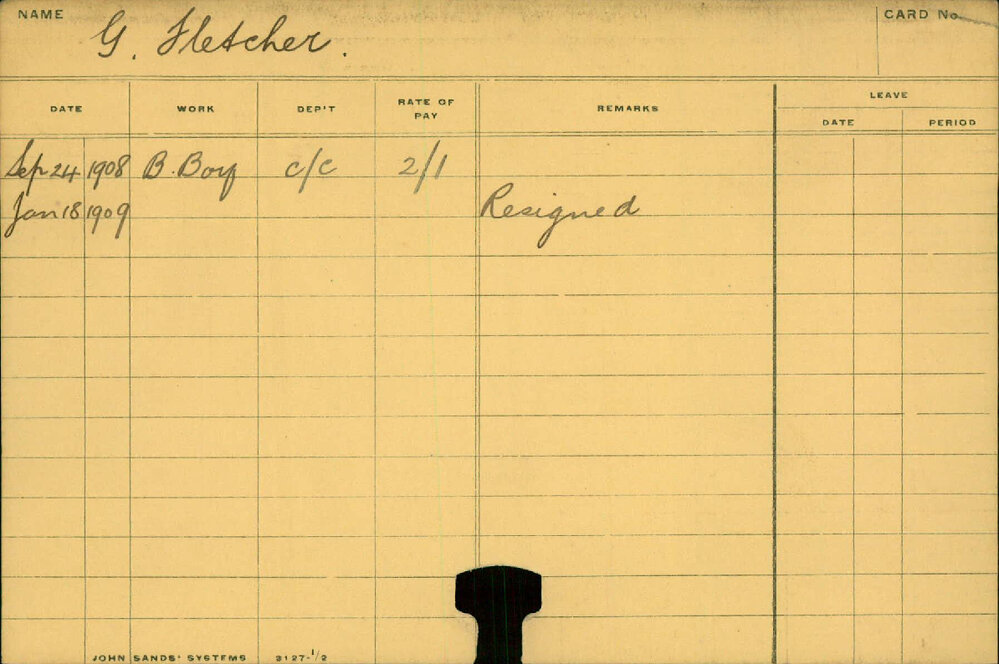 NAME G. Fletcher. CARD No.
DATE WORK DEP'T RATE OF PAY REMARKS LEAVE
DATE PERIOD
Sep 24 1908 B. Boy c/c 2/1
Jan 18 1909 Resigned
JOHN SANDS' SYSTEMS 3127-1/2